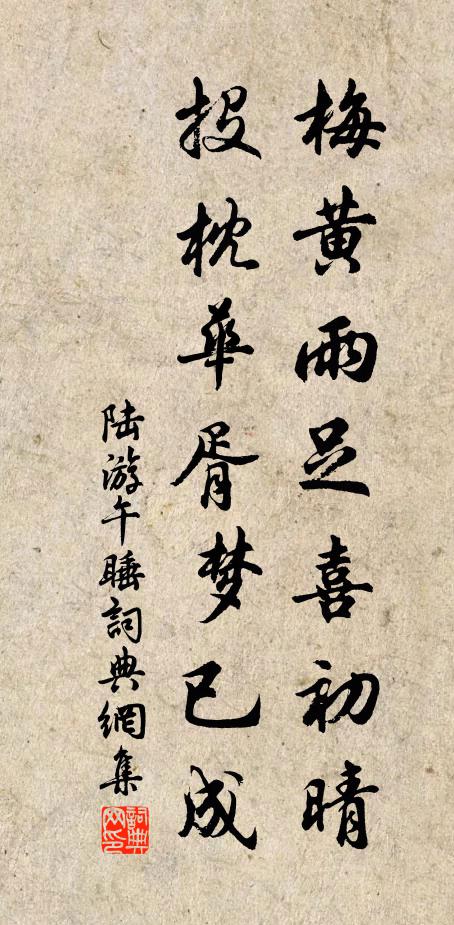 梅黄雨足喜初晴
投枕華胥梦已成
陆游午睡詞典網集
詞典网印